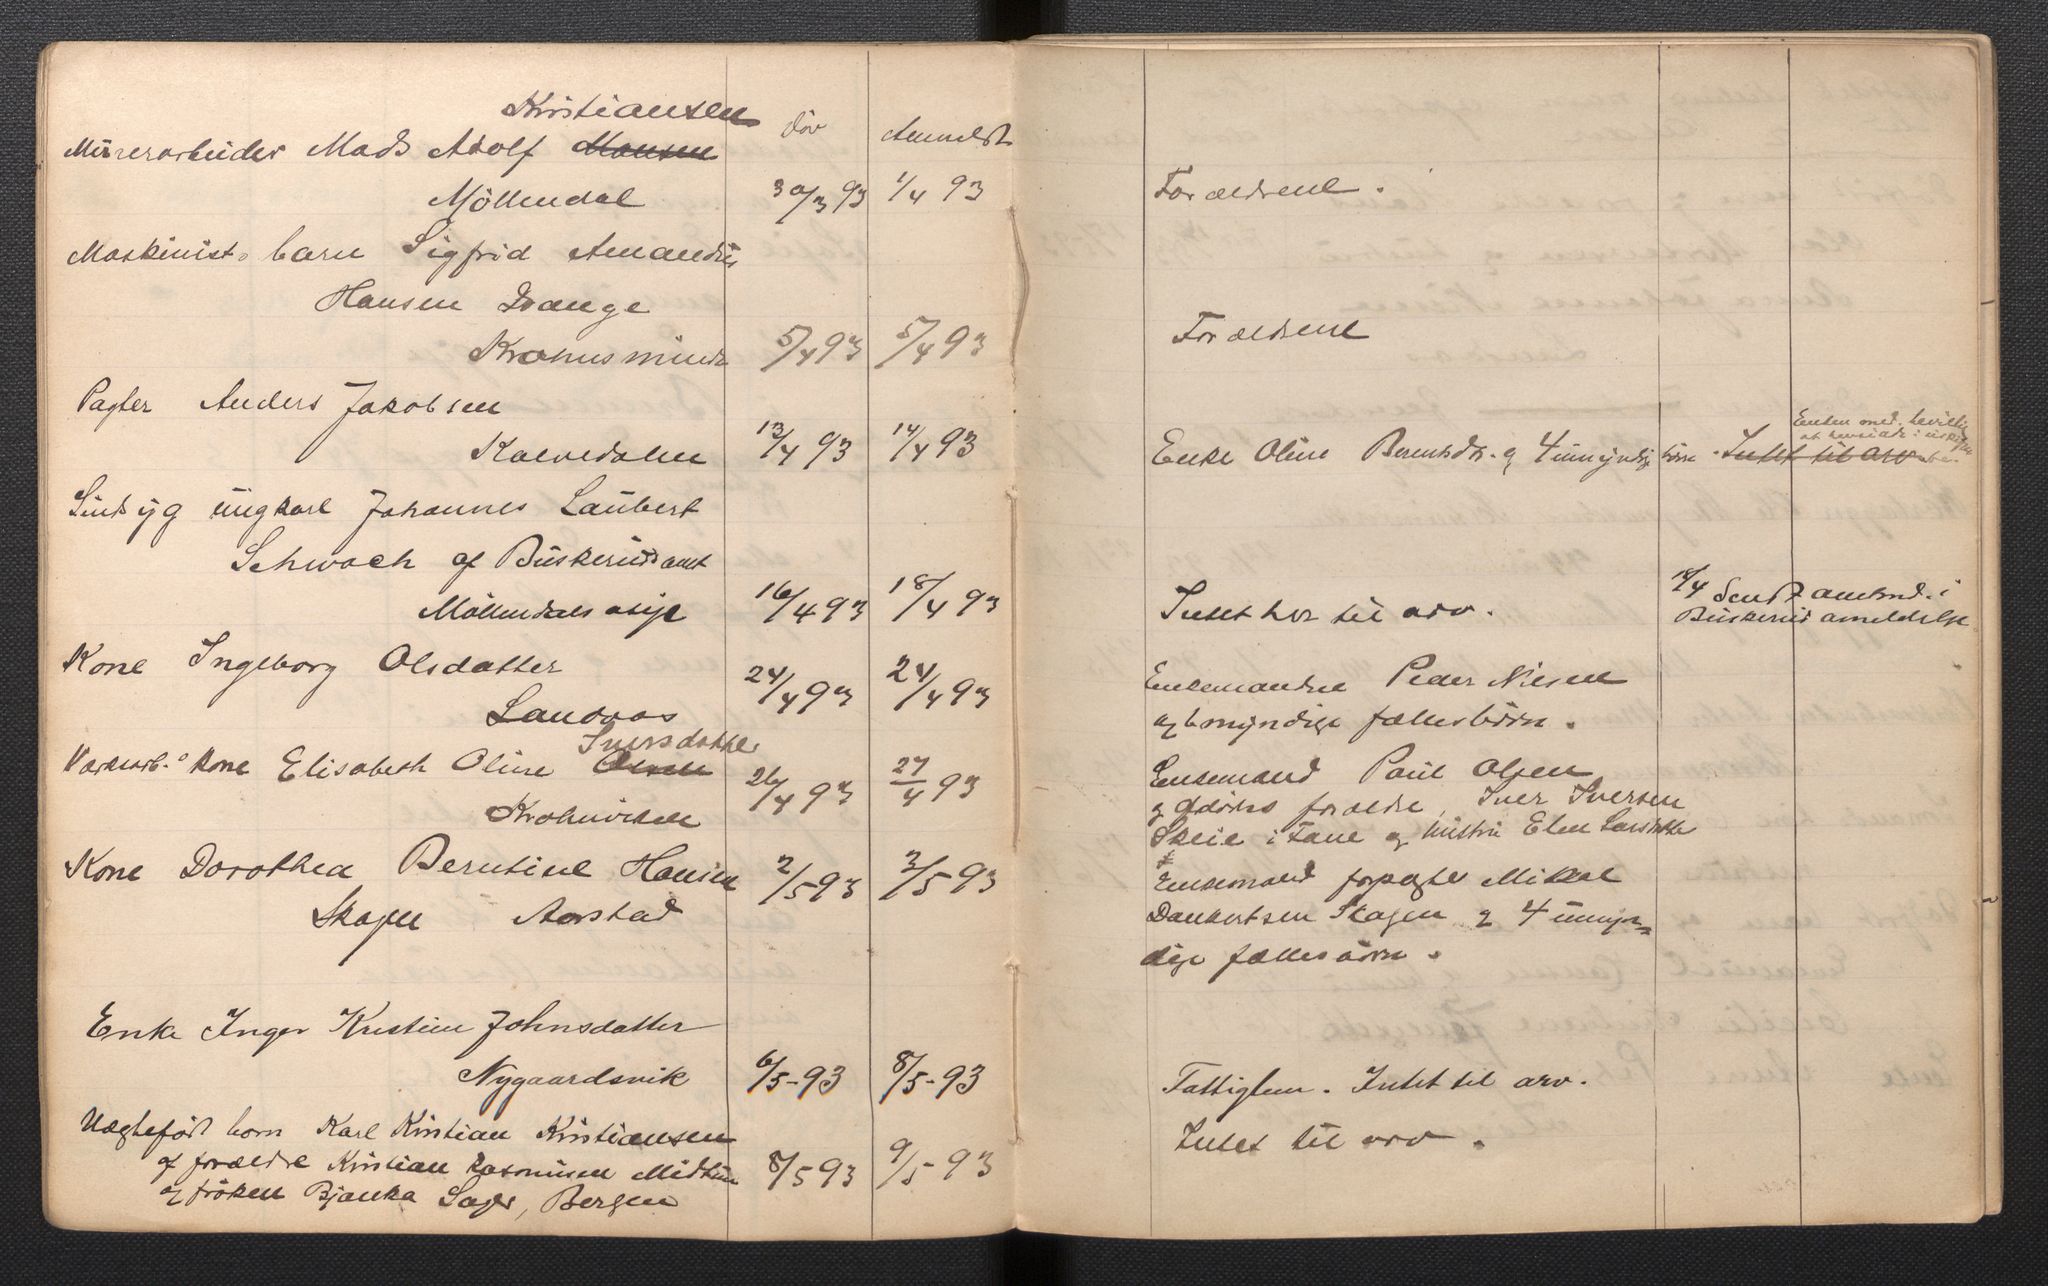 Kristiansen
Minerarbeider Mads Adolf Monsen død Anmeldt
Möllendal 30/3 93 1/4 93 Forældrene.
Maskinist. barn Sigfrid Amandus
Hansen Drange
Krohnsminde 5/4 93 5/4 93 Forældrene
Pagter Anders Jakobsen
Enken med. bevilling
at hensidde i uskiftet bo.
Kalvedalen 13/4 93 14/4 93 Enke Oline Berentsdtr. og 4 umyndige børn. Intet til arv
Sindsyg ungkarl Johannes Laubert
Schwach af Buskeruds amt
Möllendals asyl 16/4 93 18/4 93 Intet her til arv. 18/4 Sendt amtmd. i
Buskerud anmeldelse
Kone Ingeborg Olsdatter
Landaas 24/4 93 24/4 93 Enkemanden Peder Nilsen
og 6 myndige fællesbørn.
Iversdatter
Værksarb. Kone Elisabeth Oline Olsen
Krohnviken 26/4 93 27/4 93 Enkemand Paul Olsen
og dødes forældre, Iver Iversen
Skeie i Fane og hustru Elen Larsdatter
Kone Dorothea Berntine Hansen 2/5 93 3/5 93 Enkemand forpagter Mikkal
Skagen Aarstad Dankertsen Skagen og 4 umyn-
dige fællesbørn.
Enke Inger Kristine Johnsdatter
Nygaardsvik 6/5-93 8/5-93 Fattiglem. Intet til arv.
Uægtefødt barn Karl Kristian Kristiansen Intet til arv.
af forældre Kristian Rasmusen Midttun 8/5 93 9/5 93
og frøken Bjanka Sager, Bergen